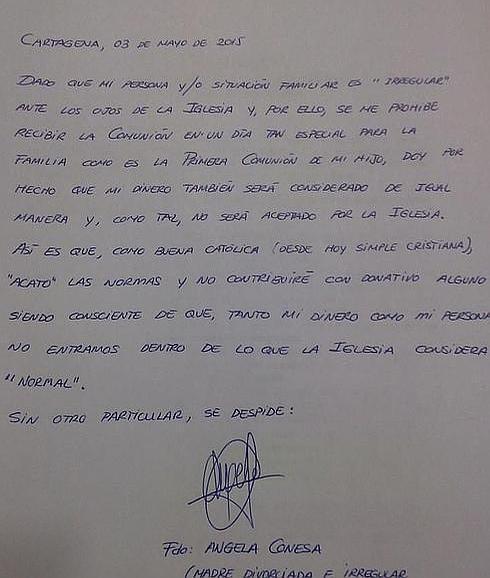 CARTAGENA, 03 DE MAYO DE 2015
DADO QUE MI PERSONA Y/O SITUACIÓN FAMILIAR ES "IRREGULAR"
ANTE LOS OJOS DE LA IGLESIA Y, POR ELLO, SE ME PROHIBE
RECIBIR LA COMUNIÓN EN UN DÍA TAN ESPECIAL PARA LA
FAMILIA COMO ES LA PRIMERA COMUNIÓN DE MI HIJO, DOY POR
HECHO QUE MI DINERO TAMBIÉN SERÁ CONSIDERADO DE IGUAL
MANERA Y, COMO TAL, NO SERÁ ACEPTADO POR LA IGLESIA.
ASÍ ES QUE, COMO BUENA CATÓLICA (DESDE HOY SIMPLE CRISTIANA),
"ACATO" LAS NORMAS Y NO CONTRIBUIRÉ CON DONATIVO ALGUNO
SIENDO CONSCIENTE DE QUE, TANTO MI DINERO COMO MI PERSONA
NO ENTRAMOS DENTRO DE LO QUE LA IGLESIA CONSIDERA
"NORMAL".
SIN OTRO PARTICULAR, SE DESPIDE:
Angela
Fdo: ANGELA CONESA
(MADRE DIVORCIADA E IRREGULAR